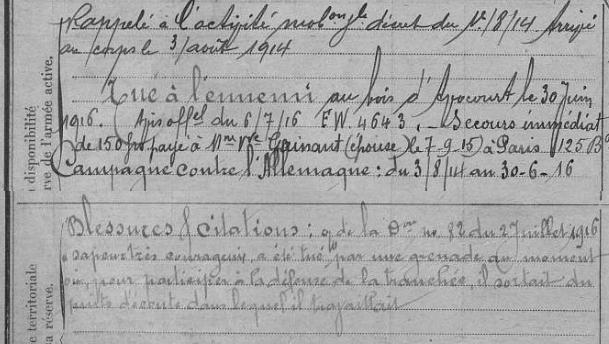 Rappelé à l'activité mob on gle décret du 1er/8/14 Arrivé
au corps le 3 août 1914
Tué à l'ennemi au bois d'Avocourt le 30 Juin
1916. (Avis offel du 6/7/16 F.W. 4643. - Secours immédiat
de 150 frs payé à Mme Vve Gainant (épouse le 7-9-15) à Paris 125 Bd
Campagne contre l'Allemagne : du 3/8/14 au 30-6-16
Blessures & citations : o/ de la Don no 82 du 27 juillet 1916
sapeur très courageux, a été tué par une grenade au moment
où, pour participer à la défense de la tranchée, il sortait du
puits d'écoute dans lequel il travaillait
disponibilité
rve de l'armée active.
e territoriale
a réserve.